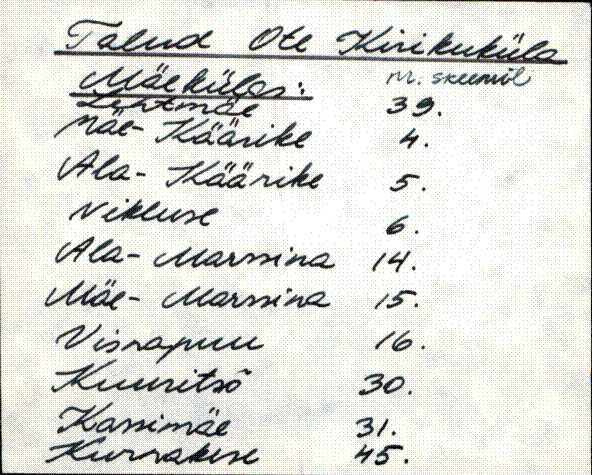 Talud Ote Kirikuküla
Mäeküla: nr. skeemil
Lehtmäe 39.
Mäe-Käärike 4.
Ala-Käärike 5.
Nikluse 6.
Ala-Marssina 14.
Mäe-Marssina 15.
Visnapuu 16.
Kuuritsõ 30.
Kassimäe 31.
Kurrakese 45.